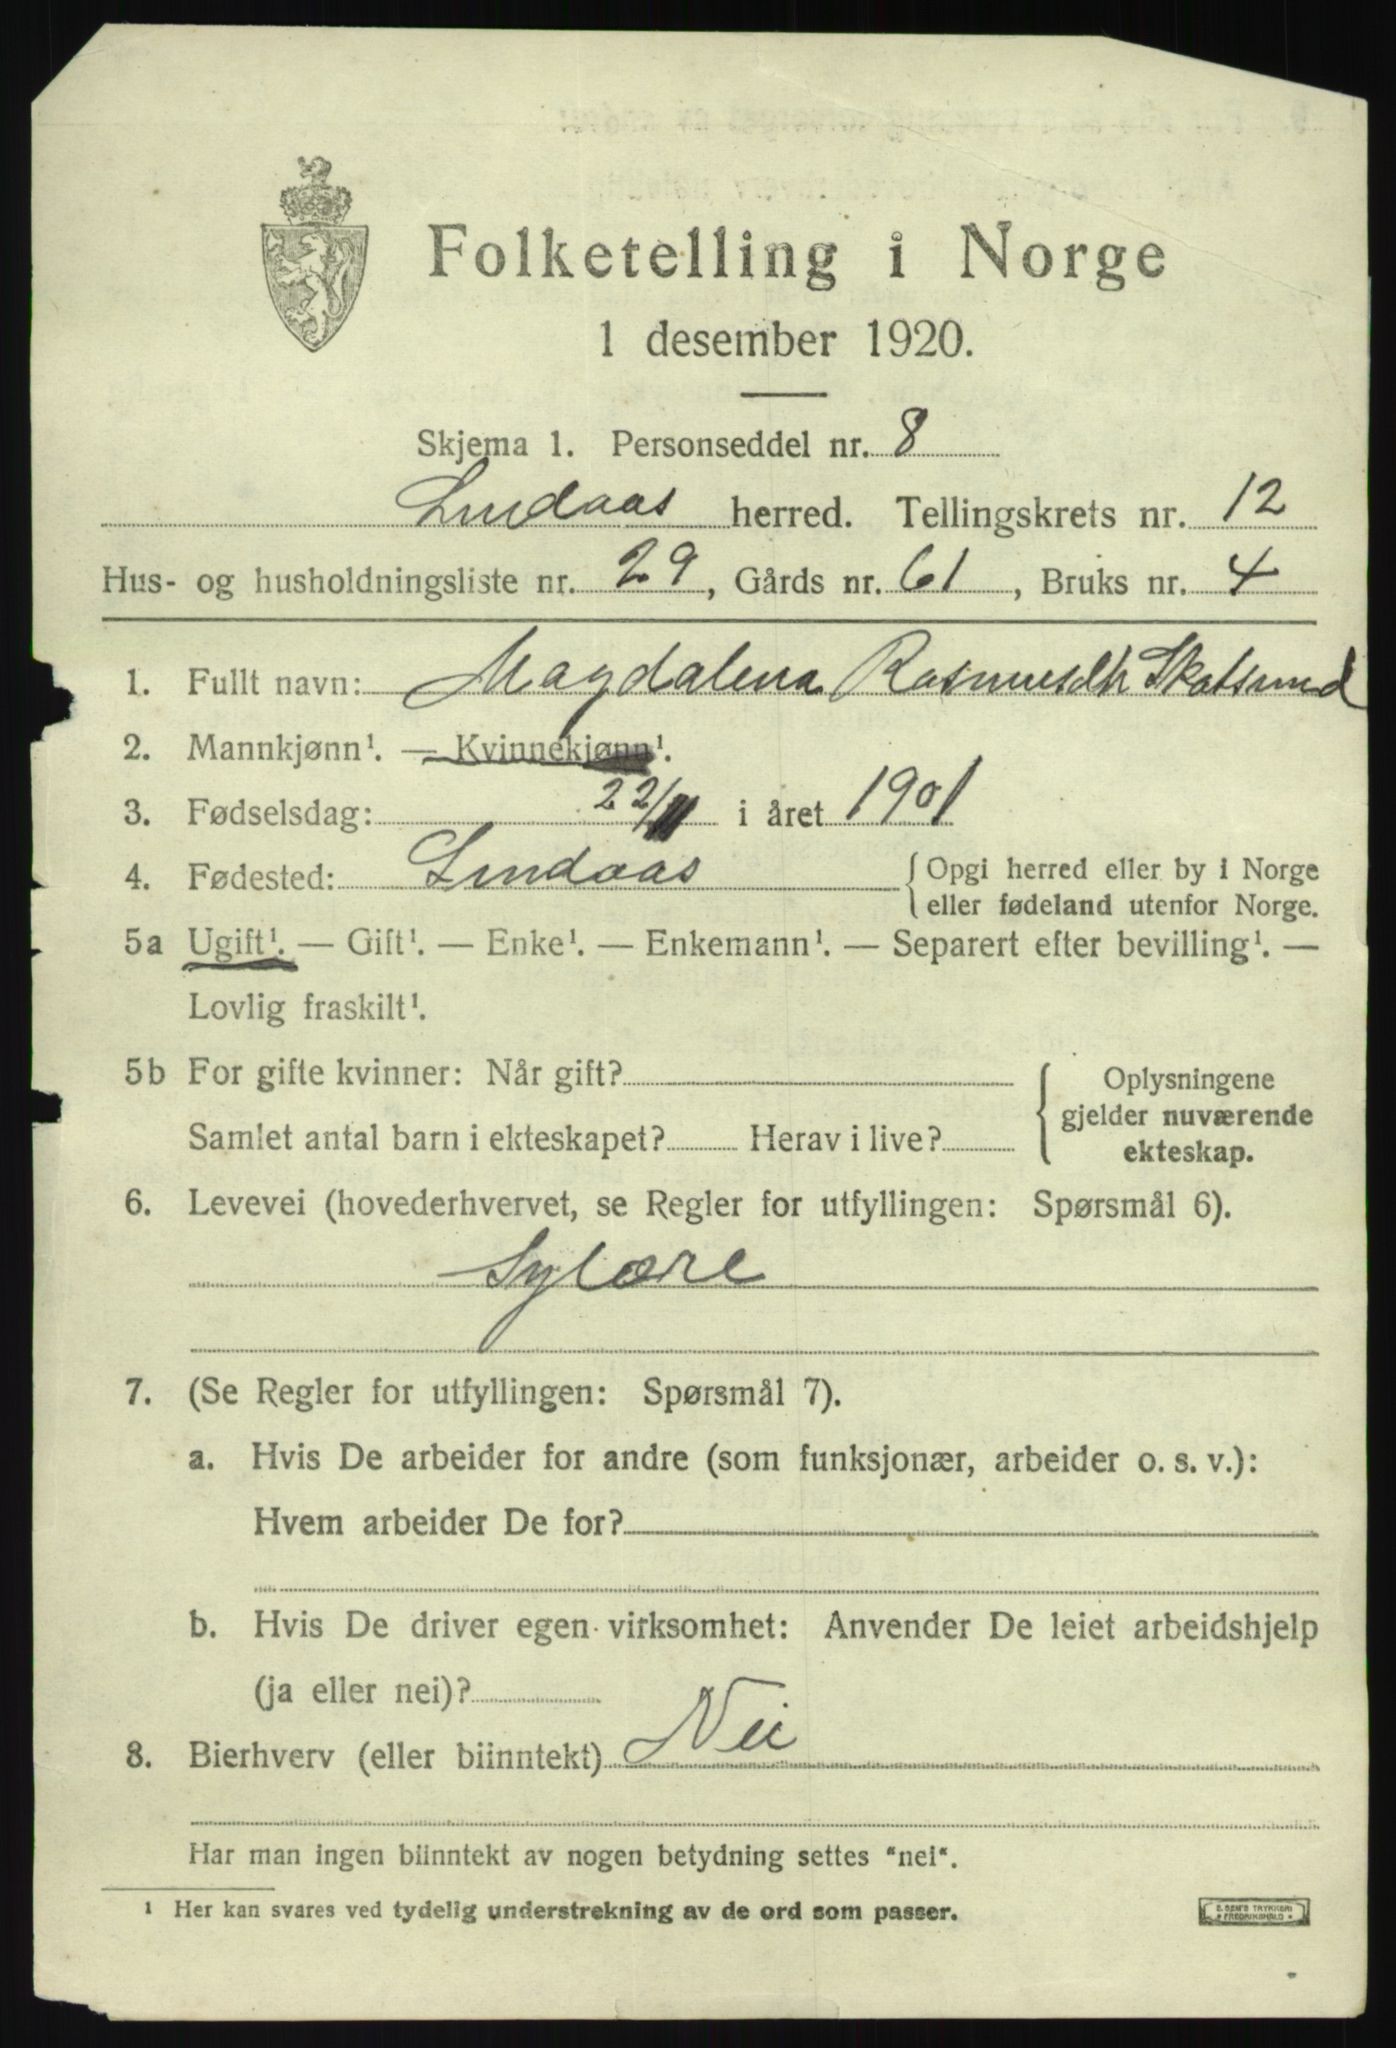 Folketelling i Norge
1 desember 1920.
Skjema 1. Personseddel nr. 8
Lindaas herred. Tellingskrets nr. 12
Hus- og husholdningsliste nr. 29, Gårds nr. 61, Bruks nr. 4
1. Fullt navn: Magdalena Rasmusdtr Skatsund
2. Mannkjønn¹. — Kvinnekjønn¹.
3. Fødselsdag: 22/11 i året 1901
4. Fødested: Lindaas {Opgi herred eller by i Norge
eller fødeland utenfor Norge.
5a Ugift¹. — Gift¹. — Enke¹. — Enkemann¹. — Separert efter bevilling¹. —
Lovlig fraskilt¹.
5b For gifte kvinner: Når gift? { Oplysningene
gjelder nuværende
Samlet antal barn i ekteskapet? Herav i live?
ekteskap.
6. Levevei (hovederhvervet, se Regler for utfyllingen: Spørsmål 6).
Sylære
7. (Se Regler for utfyllingen: Spørsmål 7).
a. Hvis De arbeider for andre (som funksjonær, arbeider o. s. v.):
Hvem arbeider De for?
b. Hvis De driver egen virksomhet: Anvender De leiet arbeidshjelp
(ja eller nei)?
8. Bierhverv (eller biinntekt) Nei
Har man ingen biinntekt av nogen betydning settes "nei".
¹ Her kan svares ved tydelig understrekning av de ord som passer.
TRYKKERI
FREDRIKSHALD